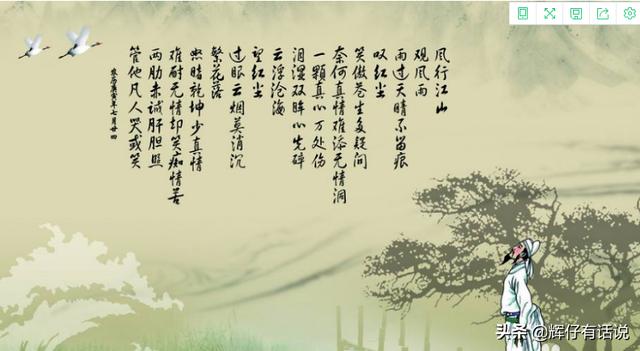 風行江山
观風雨
雨过天晴不留痕
叹红尘
笑傲苍生多疑间
奈何真情难添无情洞
一颗真心万处伤
泪湿双眸心先碎
云浮沧海
望红尘
过眼云烟莫消沉
繁花落
暗乾坤少真情
难耐无情却笑痴情苦
两肋赤诚肝胆照
管他凡人哭或笑
农历庚寅年七月廿四
头条 @辉仔有话说